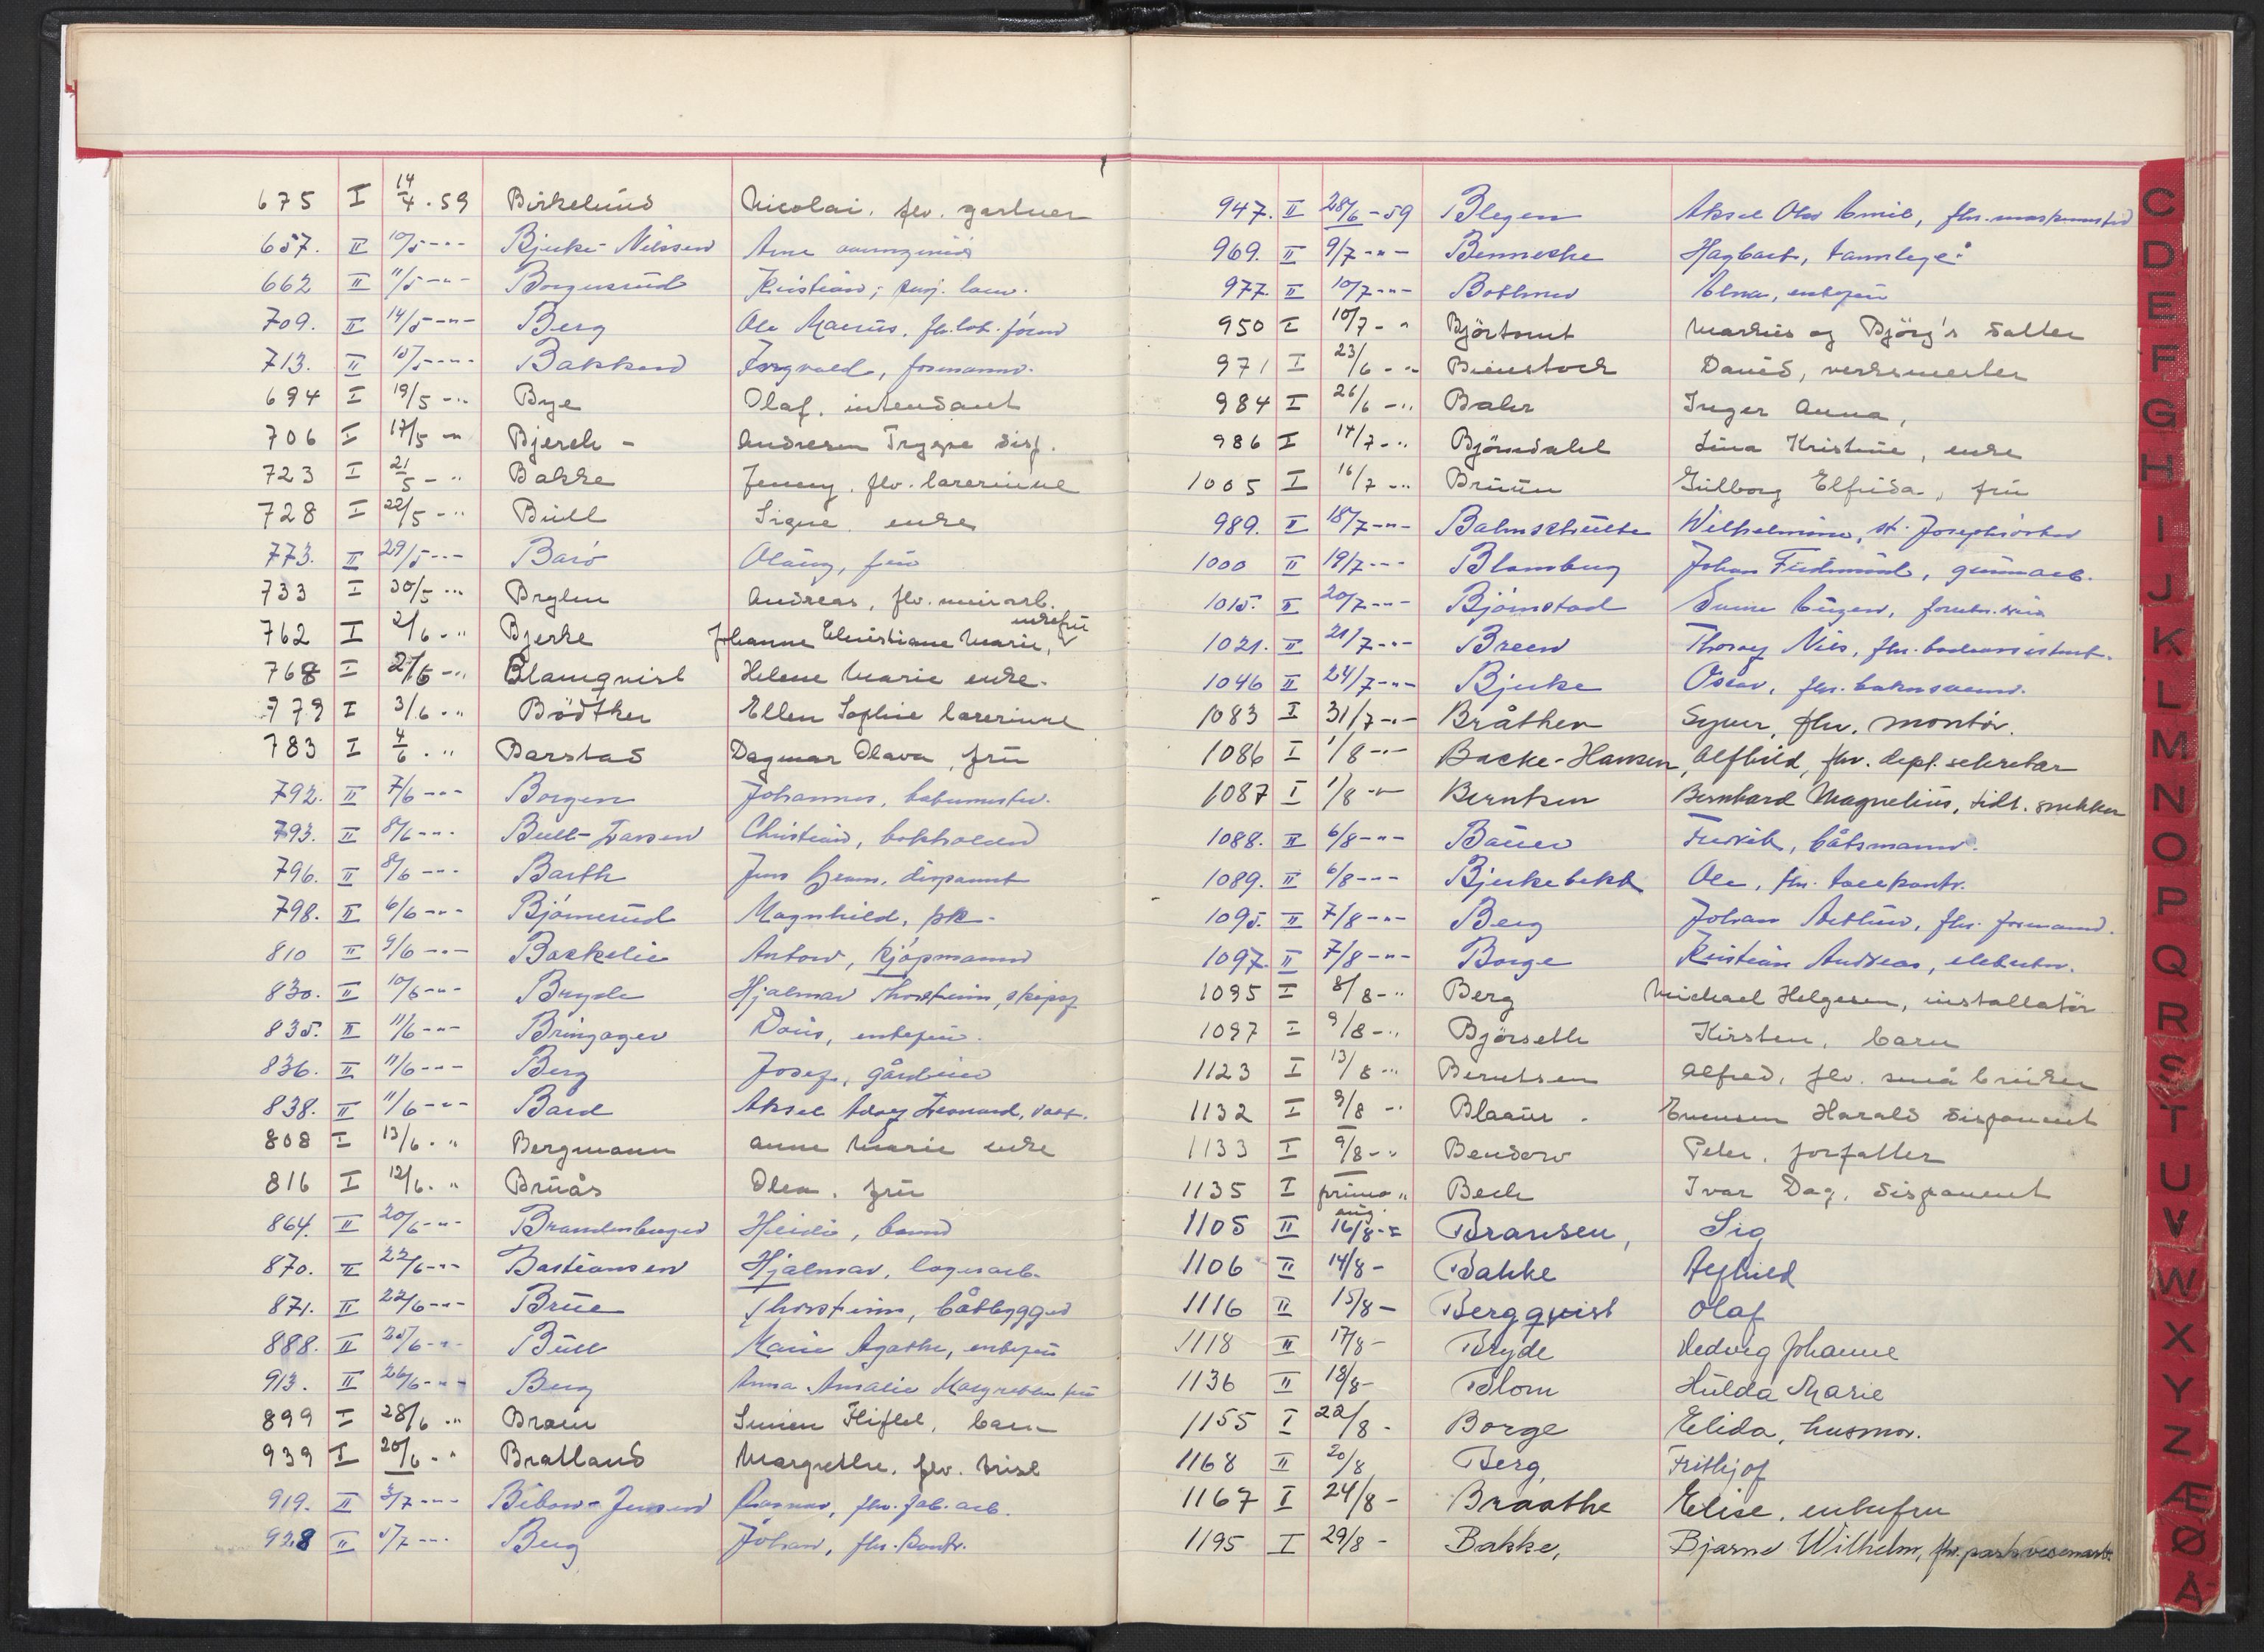 675 I 14/4 . 59 Birkelund Nicolai. flv. gartner
657. II 10/5 - " - Bjerke-Nilssen Arne
662 II 11/5 - " - Borgersrud Kristian,
709. II 14/5 - " - Berg Ole Marius,
713. II 15/5 - " - Bakken Torgvald, formann.
694 I 19/5 - " Bye Olaf. intendant
706 I 17/5 - " Bjerch - Andresen Trygve disp.
723 I 21/5 - " Bakke Jenny. flv. lærerinne
728 I 22/5 - " Bull Signe enke
773. II 29/5 - " - Barò Olaug, frue
733 I 30/5 - " Brylen Andreas, flv. murarb.
762 I 2/6 - " Bjerke Johanne Christiane Marie, enkefru
768 I 2/6 - " Blamqvist Helene Marie enke.
779 I 3/6 . " Bödtker Ellen Sophie lærerinne
783 I 4/6 . " Barstad Dagmar Olava, fru
792. II 7/6 - " - Borgen Johannes,
793. II 8/6 - " - Bull-Larsen Christian, bokholder
796. II 8/6 - " - Barth Jens Herm. disponent
798. II 6/6 - " - Bjørnerud Magnhild, pk.
810 II 9/6 - " - Backelie Anton, kjøpmann
830. II 10/6 - " - Bryde Hjalmar Thorstein, skipsf
835. II 11/6 - " - Bringager Doris, enkefru.
836. II 11/6 - " - Berg Josef, gårdeier
838. II 11/6 - " - Bard Aksel Adolf Leonard,
808 I 13/6 . " Bergmann Anne Marie enke
816 I 12/6 . " Bruås Olea. fru
864. II 20/6 - " - Brandenburger Heidi, barn
870. II 22/6 - " - Bastiansen Hjalmar, lagerarb.
871. II 22/6 - " - Brue Thorstein, båtbygger
888. II 25/6 - " - Bull Marie Agathe, enkefru
913. II 26/6 - " - Berg Anna Amalie Margrethe fru
899 I 28/6 . " Braun barn
939 I 20/6 . " Bratland Margrethe. flv.
919. II 3/7 - " - Bibow-Jensen Ragnar, fhv. fab. arb.
928 II 5/7 - " - Berg Johan, fhv. kontr.
947. II 28/6 - 59 Blegen Aksel Olav Emil, fhv. maskinmster
969. II 9/7 - " - Bennecke Hagbart, tannlege
977. II 10/7 - " - Bothner Elna, enkefru
950 I 10/7 - " Björtomt Markus og Björg's datter
971 I 23/6 - " Bienstock David, verksmester
984 I 26/6 - " Bahr Inger Anna,
986 I 14/7 - " Björndahl Lina Kristine, enke
1005 I 16/7 - " Bruun Gulborg Elfrida, fru
989. I 18/7 - " - Bahnschulte Wilhelmine, st. Josephsöster
1000 II 19/7 - " - Blomberg Johan Ferdinand, gummiarb.
1015. II 20/7 - " - Björnstad
1021. II 21/7 - " - Breen Thoralf Nils,
1046 II 24/7 - " - Bjerke Oscar, fhv.
1083 I 31/7 - " - Bråthen Syver, fhv. montör.
1086 I 1/8 - " - Backe-Hansen, Alfhild, fhv. dept. sekretær
1087 I 1/8 - " Berntsen Bernhard Magnelius, tidl. snekker
1088. II 6/8 - " - Bauer Fredrik, båtsmann.
1089. II 6/8 - " - Bjerkebekk Ole, fhv.
1095. II 7/8 - " - Berg Johan Arthur, fhv. formann.
1097. II 7/8 - " - Borge Kristian Andreas, elektrkr.
1095 I 8/8 - " Berg Michael Helgesen, installatör
1097 I 9/8 - " Björseth Kirsten, barn
1123 I 13/8 - " Berntsen Alfred, flv. småbruker
1132 I 9/8 - " Blaauw . Evensen Harald disponent
1133 I 9/8 - " Bendow Peter. forfatter
1135 I primo aug. " Bech Ivar Dag, disponent
1105 II 16/8 - " Bransen, Sig
1106 II 14/8 - Bakke Alfhild
1116 II 15/8 - Bergqvist Olaf
1118 II 17/8 - Bryde Hedvig Johanne
1136 II 18/8 - Blom Hulda Marie
1155 I 22/8 - Borge Elida, husmor.
1168 II 20/8 Berg, Frithjof
1167 I 24/8 - Braathe Elise, enkefru
1195 I 29/8 - Bakke, Bjarne Wilhelm, fhv. parkvesenarb.
C
D
E
F
G
H
I
J
K
L
M
N
O
P
Q
R
S
T
U
V
W
X
Y
Z
Æ
Ø
Å